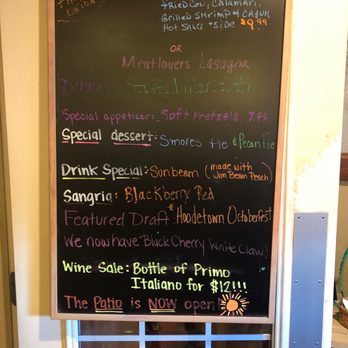 Fried Cod, Calamari,
Grilled Shrimp & Cajun
Hot Sauce + Side $9.99
OR
Meatlovers Lasagna
Dinner: Stuffed
Special appetizer: Soft Pretzels 7.95
Special dessert: S'mores Pie & Pecan Pie
Drink Special: Sunbeam (made with
Jim Beam Peach)
Sangria: Blackberry Red
Featured Draft: Hoodetown Octoberfest
We now have Black Cherry White Claw!
Wine Sale: Bottle of Primo
Italiano for $12!!!
The Patio is NOW open